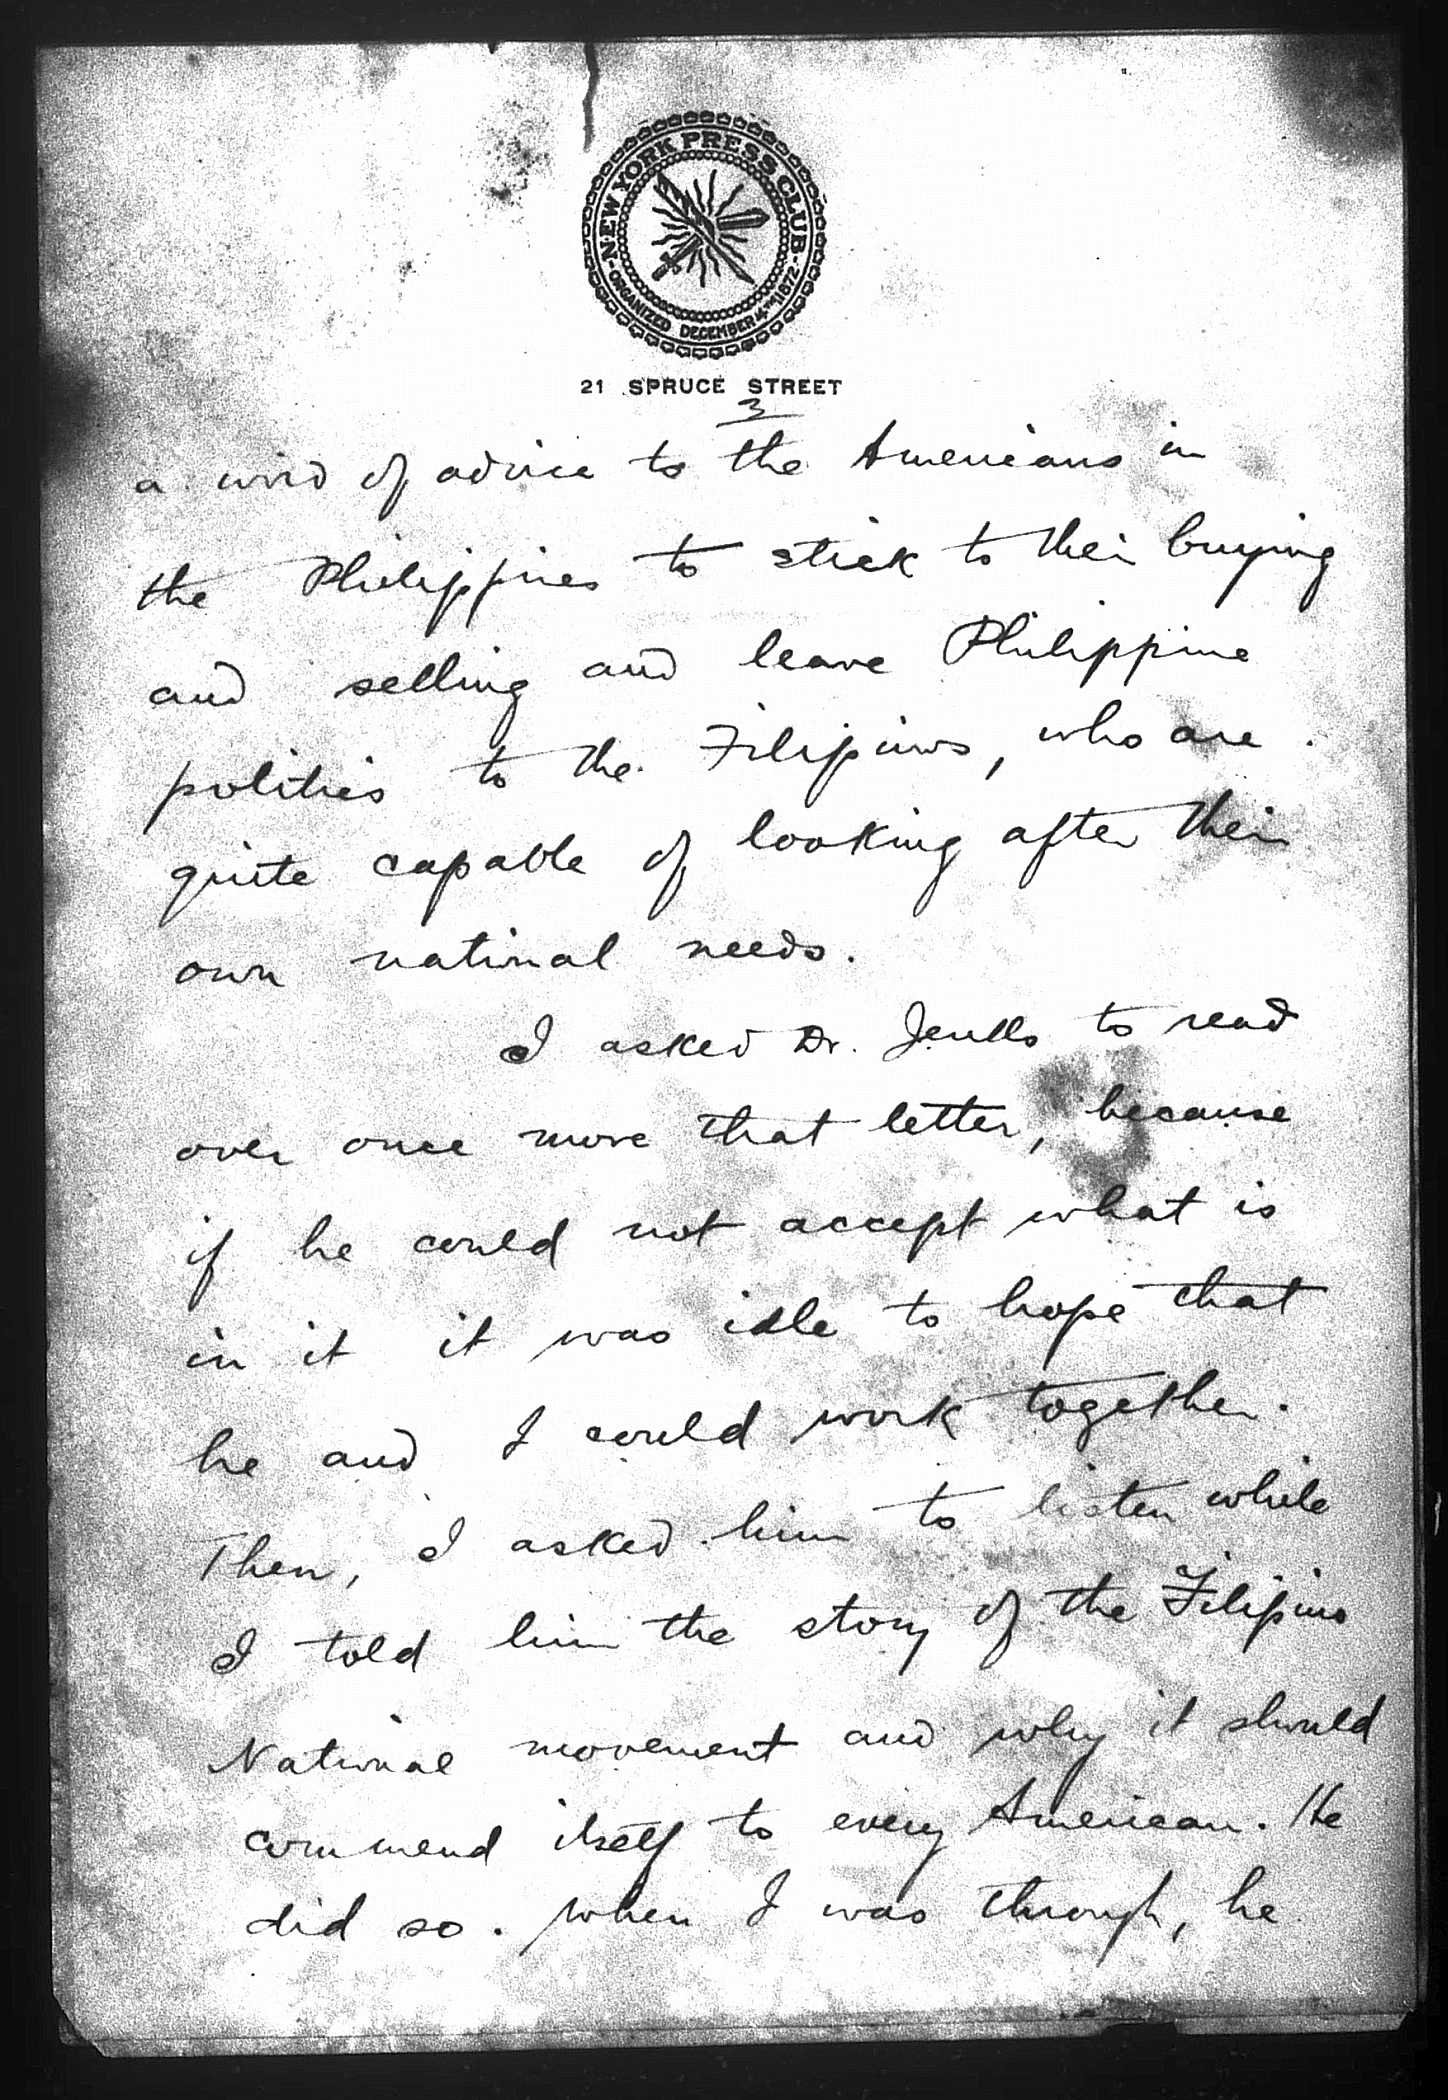 NEW YORK PRESS CLUB
ORGANIZED DECEMBER 4TH 1872
21 SPRUCE STREET
3
a word of advice to the Americans in
the Philippines to stick to their buying
and selling and leave Philippine
politics to the Filipinos, who are
quite capable of looking after their
own national needs.
I asked Dr. Jenks to read
over once more that letter, because
if he could not accept what is
in it it was idle to hope that
he and I could work together.
Then, I asked him to listen while
I told him the story of the Filipino
National movement and why it should
commend itself to every American. He
did so. When I was through, he